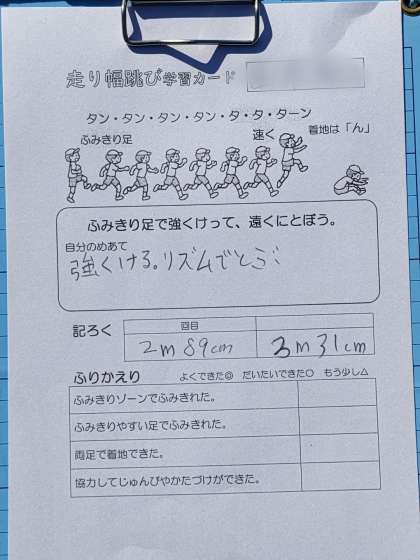 走り幅跳び学習カード
タン・タン・タン・タン・タ・タ・ターン
ふみきり足
速く
着地は「ん」
ふみきり足で強くけって、遠くにとぼう。
自分のめあて
強くける。リズムでとぶ
記ろく
回目
2m 89cm
3m 31cm
ふりかえり よくできた◎ だいたいできた○ もう少し△
ふみきりゾーンでふみきれた。
ふみきりやすい足でふみきれた。
両足で着地できた。
協力してじゅんびやかたづけができた。